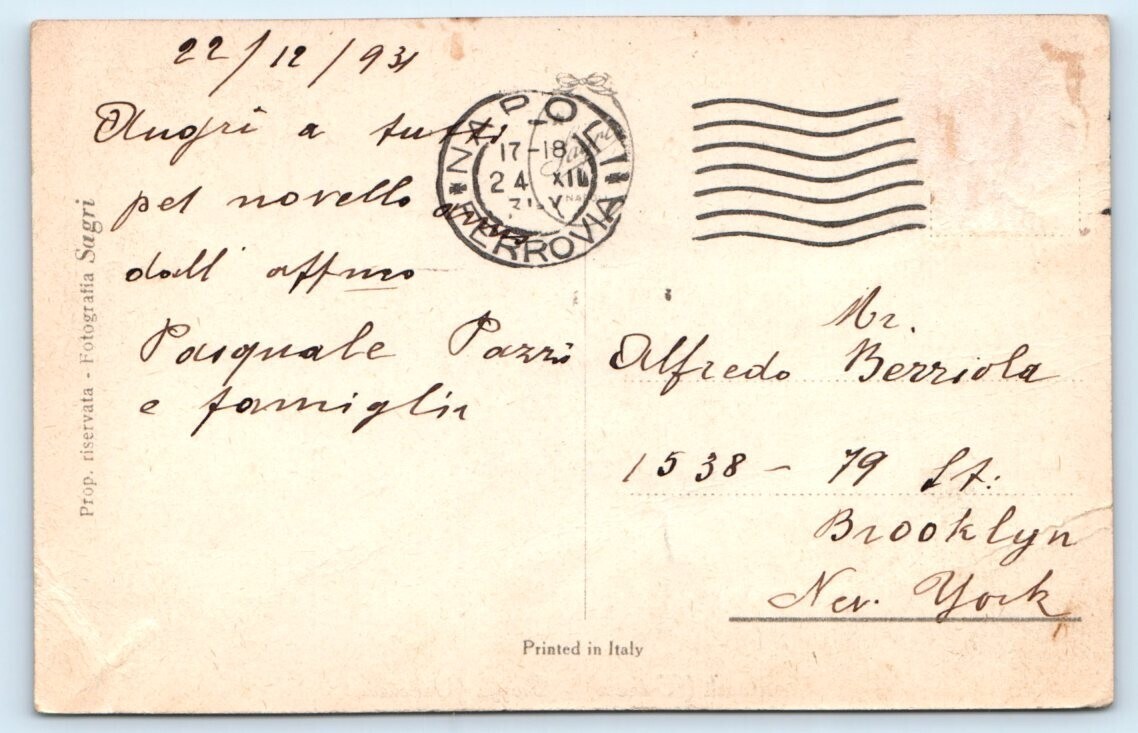 22/12/931
Augri a tutti
pel novello anno
dall affmo
Pasquale Pazzi
e famiglia
NAPOLI
17-18
24 XII
31-X
FERROVIA
Mr.
Alfredo Berriola
1538 - 79 St:
Brooklyn
New. York
Prop. riservata - Fotografia Sagri
Printed in Italy